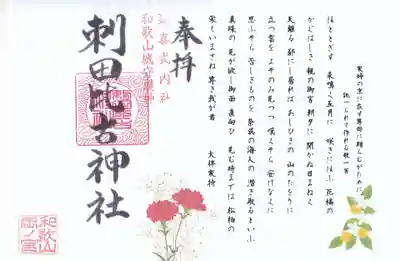 家婦の京に在す尊母に贈らむがために、
誂へられて作れる歌一首
ほととぎす 来鳴く五月に 咲きにほふ 花橘の
かぐはしき 親の御言 朝夕に 聞かぬ日まねく
天離る 鄙にし居れば あしひきの 山のたをりに
立つ雲を よそのみ見つつ 嘆くそら 安けなくに
思ふそら 苦しきものを 奈呉の海人の 潜き取るといふ
真珠の 見が欲し御面 直向ひ 見む時までは 松柏の
栄えいまさね 尊き我が君 大伴家持
奉拝
延喜式内社
和歌山城守護神
刺田比古神社
和歌山
岡ノ宮